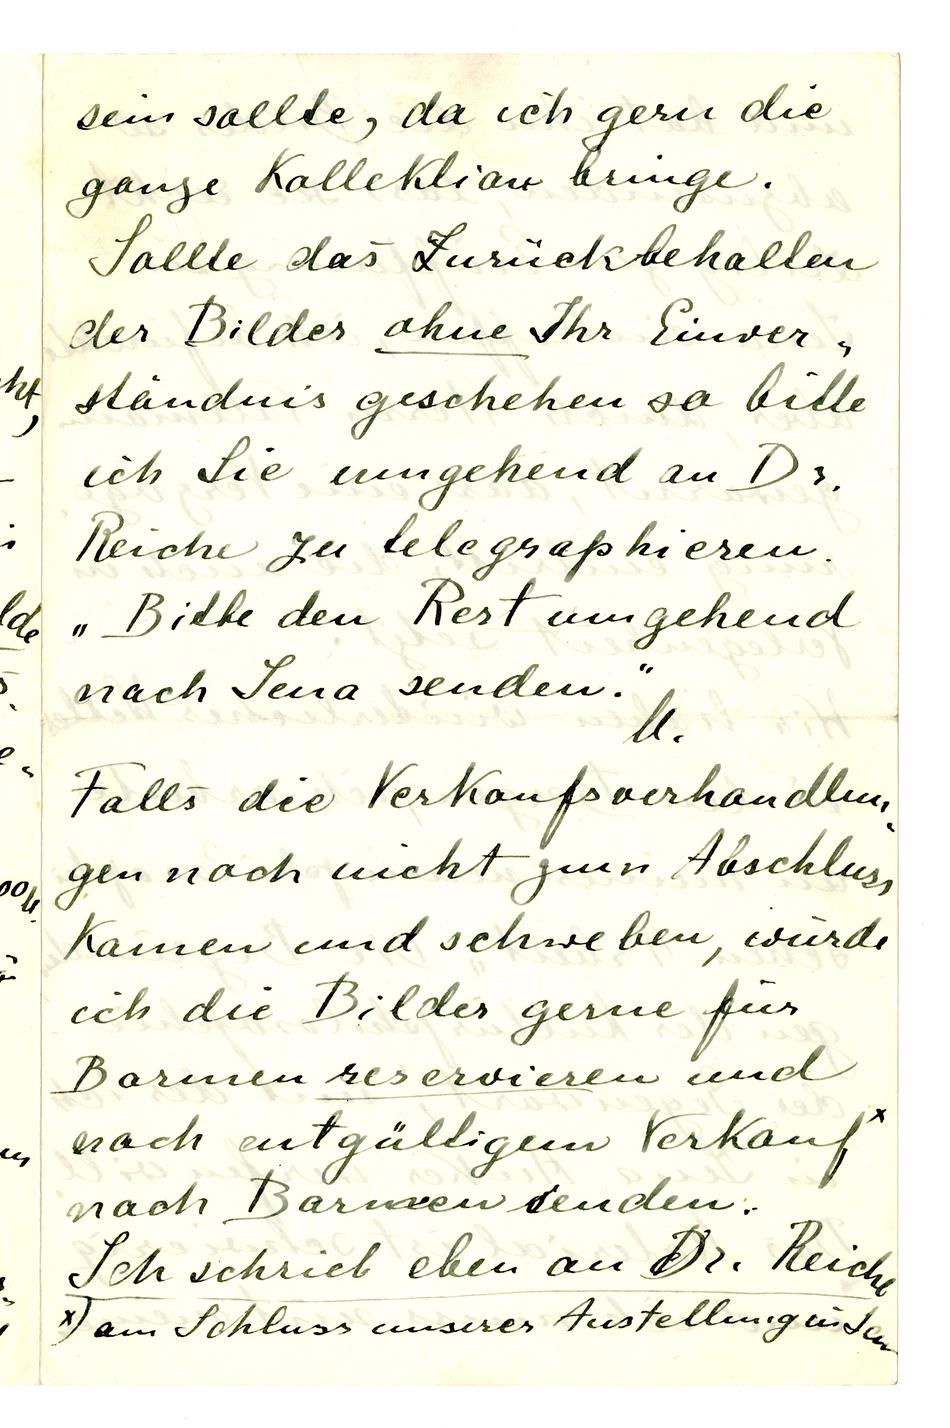 sein sollte, da ich gern die
ganze Kollektion bringe.
Sollte das Zurückbehalten
der Bilder ohne Ihr Einver„
ständnis geschehen so bitte
ich Sie umgehend an Dr.
Reiche zu telegraphieren.
„Bitte den Rest umgehend
nach Jena senden.“
Falls die Verkaufsverhandlun„
gen noch nicht zum Abschluss
kamen und schweben, würde
ich die Bilder gerne für
Barmen reservieren und
nach entgültigem Verkauf x
nach Barmen senden.
Ich schrieb eben an Dr. Reiche
x) am Schluss unserer Austellung in Jena
cht,
lde